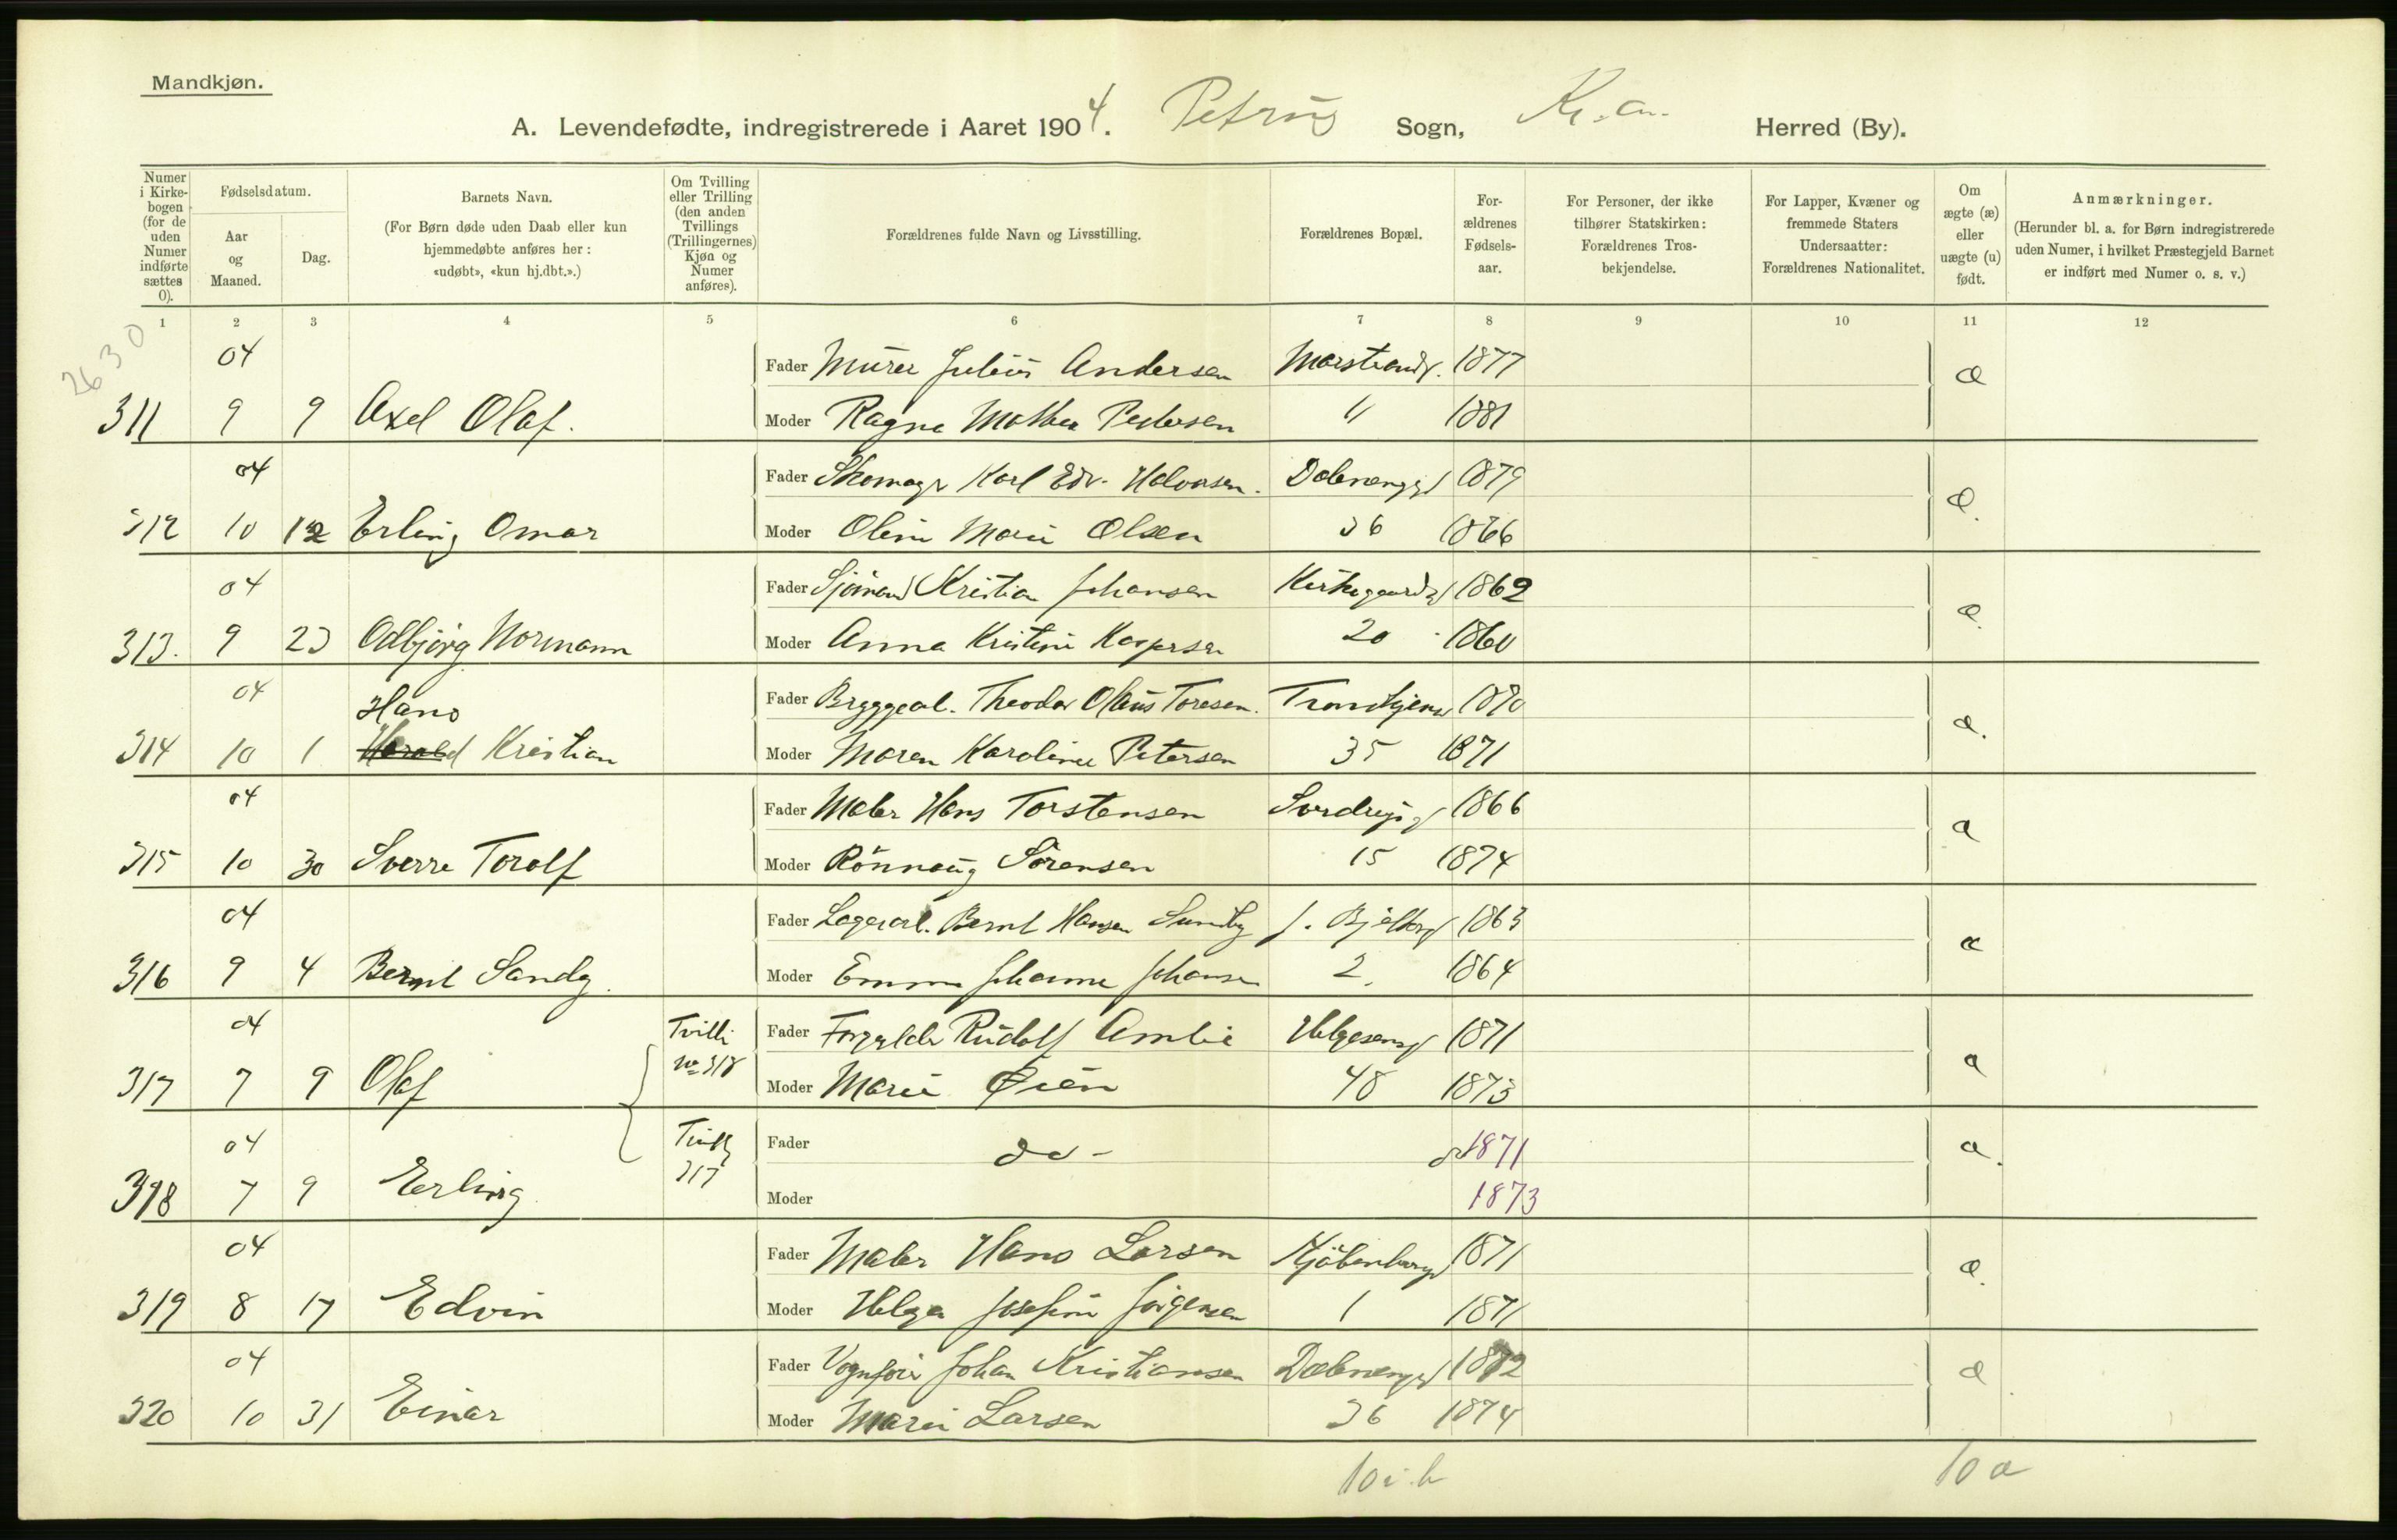 Mandkjøn.
A. Levendefødte, indregistrerede i Aaret 1904. Petrus Sogn, Kr.a. Herred (By).
Numer i Kirkebogen (for de uden Numer indførte sættes 0).
Fødselsdatum.
Aar og Maaned.
Dag.
Barnets Navn.
(For Børn døde uden Daab eller kun hjemmedøbte anføres her: «udøbt», «kun hj.dbt.».)
Om Tvilling eller Trilling (den anden Tvillings (Trillingernes) Kjøn og Numer anføres).
Forældrenes fulde Navn og Livsstilling.
Forældrenes Bopæl.
Forældrenes Fødselsaar.
For Personer, der ikke tilhører Statskirken: Forældrenes Trosbekjendelse.
For Lapper, Kvæner og fremmede Staters Undersaatter: Forældrenes Nationalitet.
Om ægte (æ) eller uægte (u) født.
Anmærkninger.
(Herunder bl. a. for Børn indregistrerede uden Numer, i hvilket Præstegjeld Barnet er indført med Numer o. s. v.)
1 2 3 4 5 6 7 8 9 10 11 12
2630
04 Fader Murer Julius Andersen Marstrandg. 1877 æ
311 9 9 Axel Olaf. Moder Ragna Mathea Pedersen " 1881
04 Fader Skomagr Karl Edv. Halvorsen. Dælenengg 1879 æ.
312 10 12 Erling Omar Moder Oline Marie Olsen 36 1866
04 Fader Sjømand Kristian Johansen Kirkegaardsg 1862 æ.
313. 9 23 Odbjörg Normann Moder Anna Kristine Kaspersen 20 1860
04 Hans Fader Bryggearb. Theodor Olaus Toresen. Trondhjemsv 1870 æ.
314 10 1 Harald Kristian Moder Maren Karoline Petersen 35 1871
04 Fader Maler Hans Torstensen Sverdrupsg 1866 æ
315 10 30 Sverre Torolf Moder Rönnaug Sörensen 15 1874
04 Fader Lagerarb. Bernt Hansen Sundby J. Bjelkesg 1863 æ
316 9 4 Bernt Sandy. Moder Emma Johanne Johansen 2. 1864
04 Tvilli Fader Forgylder Rudolf Amlie Helgesensg 1871 æ
317 7 9 Olaf No 318 Moder Marie Øien 48 1873
04 Tvill Fader do - do 1871 æ.
318 7 9 Erling 317 Moder 1873
04 Fader Maler Hans Larsen Kjöbenhavng 1871 æ.
319 8 17 Edvin Moder Helga Josefine Jörgensen 1 1871
04 Fader Vognfører Johan Kristiansen Dælenengg 1872 æ
320 10 31 Einar Moder Marie Larsen 36 1874
10 i.b 10 æ